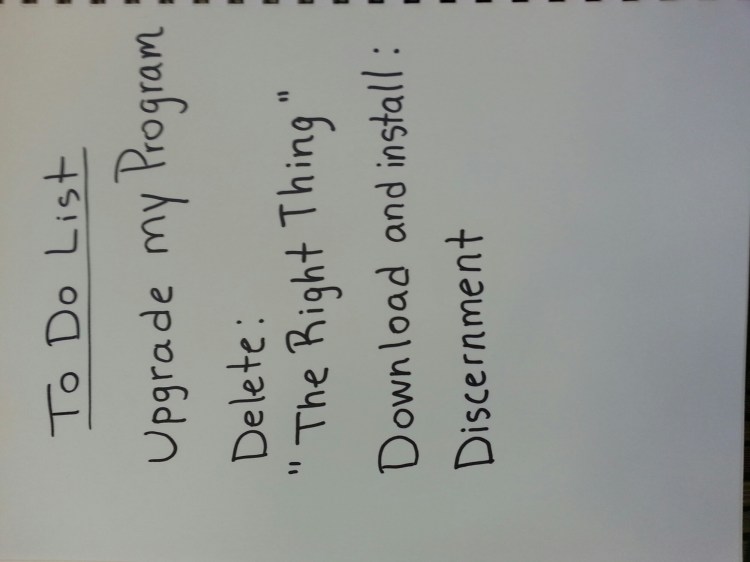 To Do List
Upgrade my Program
Delete:
"The Right Thing"
Download and install:
Discernment